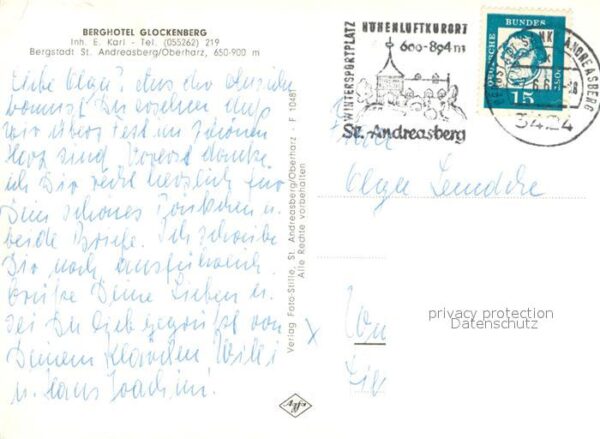 BERGHOTEL GLOCKENBERG
Inh. E. Karl - Tel. (055262) 219
Bergstadt St. Andreasberg/Oberharz, 650-900 m
Liebe Olga! Aus der Ansicht
kannst Du ersehen daß
wir übers Fest im schönen
Harz sind. Vorerst danke
ich Dir recht herzlich für
Dein schönes u.
beide Briefe. Ich schreibe
Dir noch ausführlich.
Grüße Deine Lieben u.
sei Du lieb gegrüßt von
Deinem Klärchen Willi
u. Hans Joachim.
Verlag Foto-Stille, St. Andreasberg/Oberharz - F 10481
Alle Rechte vorbehalten
WINTERSPORTPLATZ
HÖHENLUFTKURORT
600-894m
St. Andreasberg
DEUTSCHE BUNDESPOST
15
SANKT ANDREASBERG
3424
Frau
Olga
privacy protection
Datenschutz